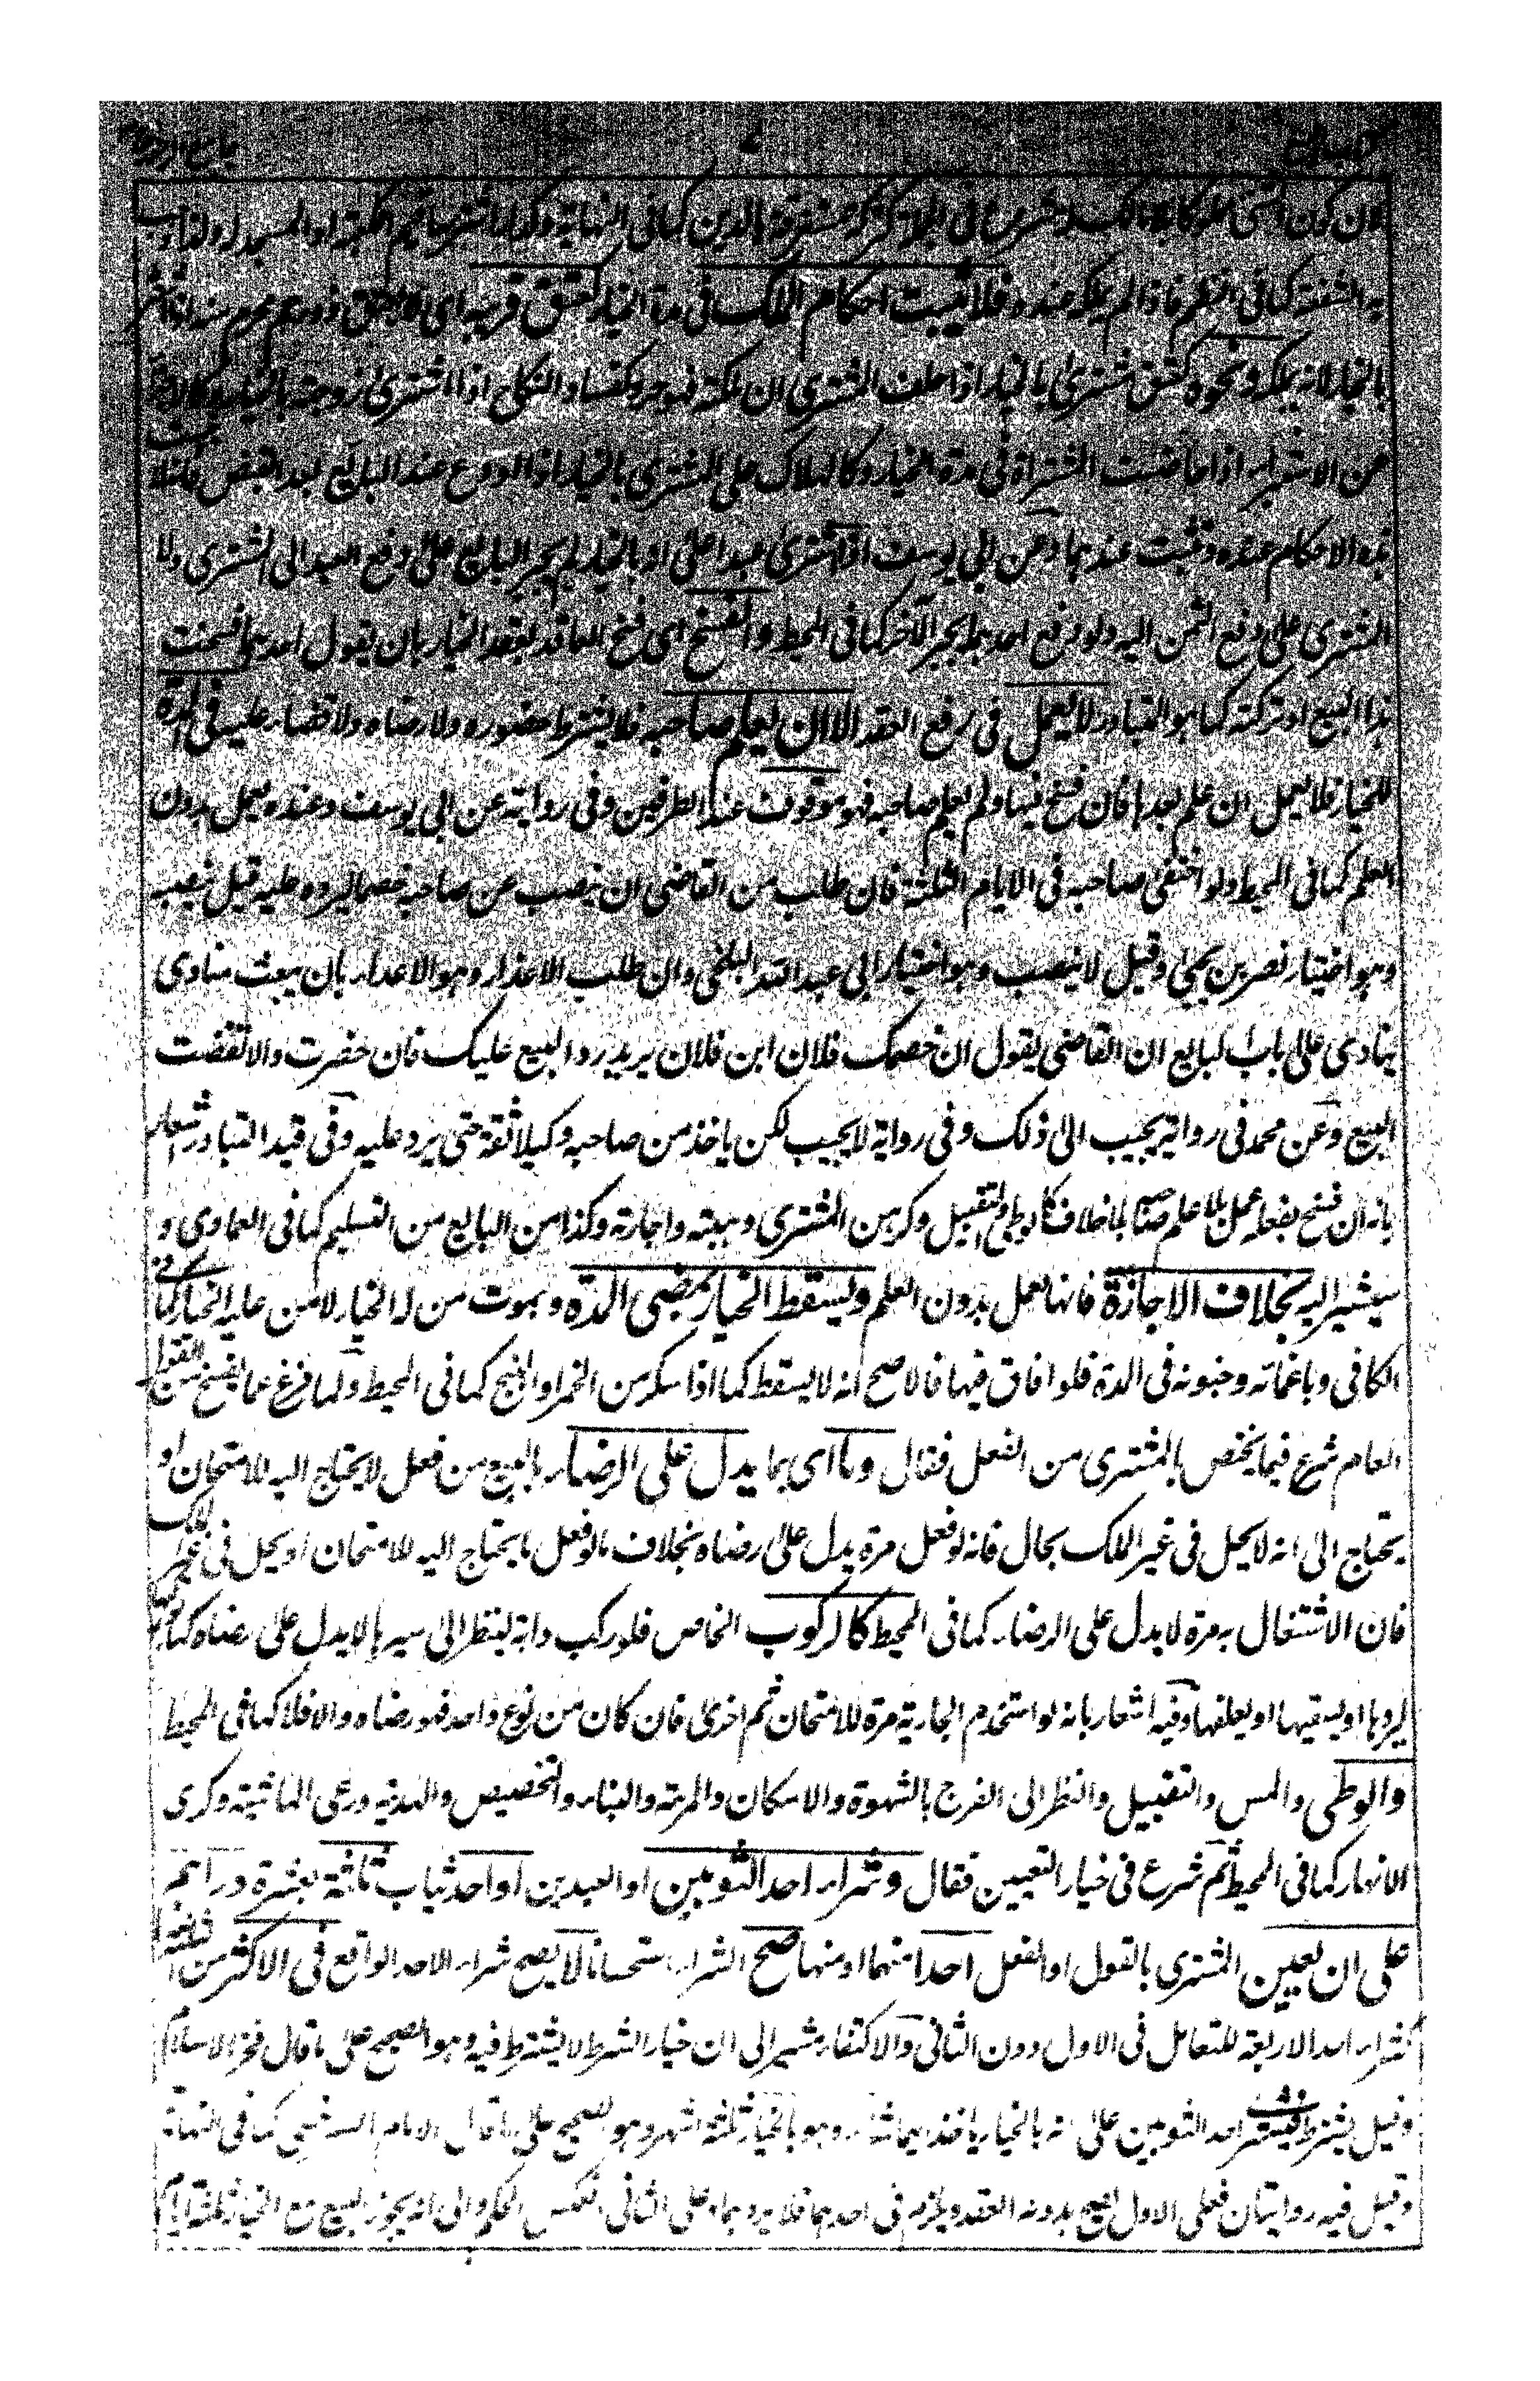 كتاب البيع
جامع الرموز
من كون الشئ مملوكا بلا مالك
كما فى النهاية
به الشفعة كما فى النظم فاذا لم يملكه عنده فلا يثبت احكام الملك فى مدة الخيار كعتق قريبه اى
بالخيار لانه يملكه ونحوه كعتق مشترى بالخيار اذا حلف المشترى ان ملكته فهو حر وكفساد النكاح اذا اشترى زوجته بالخيار
من الاستبراء اذا حاضت المشتراة فى مدة الخيار وكالهلاك على المشترى بالخيار اذا اودع عند البائع بعد القبض
هذه الاحكام عنده وثبت عندهما وعن ابى يوسف اذا اشترى عبدا على انه بالخيار لم يجبر البائع على دفع العبد الى المشترى ولا
المشترى على دفع الثمن اليه ولو دفع احدهما يجبر الآخر كما فى المحيط والفسخ اى فسخ العاقد بعقد الخيار بان يقول احدهما فسخت
هذا البيع او تركته كما هو المتبادر لا يعمل فى رفع العقد الا ان يعلم صاحبه فلا يشترط حضوره ولا رضاه ولا قضاء عليه فى المدة
للخيار فلا يعمل ان علم بعدها فان فسخ فيها ولم يعلم صاحبه فهو موقوف عند الطرفين وفى رواية عن ابى يوسف وعنده يعمل بدون
العلم كما فى المحيط ولو اختفى صاحبه فى الايام الثلثة فان طلب من القاضى ان ينصب عن صاحبه خصما ليرده عليه قيل ينصبه
وهو اختيار نصر بن يحيى وقيل لا ينصب وهو اختيار ابى عبد الله البلخى وان طلب الاعذار وهو الاعدار بان يبعث منادى
ينادى على باب البايع ان القاضى يقول ان خصمك فلان ابن فلان يريد رد البيع عليك فان حضرت والا نقضت
البيع وعن محمد فى رواية يجيب الى ذلك وفى رواية لا يجيب لكن ياخذ من صاحبه وكيلا ثقة حتى يرد عليه وفى قيد التبادر اشعار
بانه ان فسخ بفعل عمل بلا علم صاحبه بلا خلاف كالوطى والتقبيل وكرهن المشترى وهبته واجازته وكذا من البايع من التسليم كما فى العمادى و
سيشير اليه بخلاف الاجازة فانها تعمل بدون العلم ويسقط الخيار بمضى المدة وبموت من له الخيار لا من عليه الخيار كما فى
الكافى وباغمائه وجنونه فى المدة فلو افاق فيها فالاصح انه لا يسقط كما اذا سكر من الخمر او البنج كما فى المحيط ولما فرغ عما يفسخ من القول
العام شرع فيما يخص بالمشترى من الفعل فقال وما اى بما يدل على الرضاء بالمبيع من فعل لا يحتاج اليه للامتحان او
يحتاج الى انه لا يحل فى غير الملك بحال فانه لو فعل مرة يدل على رضاه بخلاف ما لو فعل ما يحتاج اليه للامتحان او يحل فى غير الملك
فان الاشتغال به مرة لا يدل على الرضاء كما فى المحيط كالركوب الخاص فلو ركب دابة لينظر الى سيرها لا يدل على رضاه كما لو ركب
ليردها او يسقيها او يعلفها وفيه اشعار بانه لو استخدم الجارية مرة للامتحان ثم اخرى فان كان من نوع واحد فهو رضاه والا فلا كما فى المحيط
والوطى والمس والتقبيل والنظر الى الفرج بالشهوة والاسكان والمرمة والبناء والتجصيص والهدم ورعى الماشية وكرى
الانهار كما فى المحيط ثم شرع فى خيار التعيين فقال وشراء احد الثوبين او العبدين او احد ثياب ثلثة بعشرة دراهم
على ان يعين المشترى بالقول او الفعل احدا منهما او منها صح الشراء استحسانا لا يصح شراء الاحد الواقع فى الاكثر من الثلثة
كشراء احد الاربعة للتعامل فى الاول دون الثانى والاكتفاء مشير الى ان خيار الشرط لا يشترط فيه وهو الصحيح على ما قال فخر الاسلام
وقيل يشترط احد الثوبين على انه بالخيار ياخذ ايهما شاء وهو بالخيار ثلثة اشهر وهو الصحيح على ما قال الامام السرخسى كما فى النهاية
وقيل فيه روايتان فعلى الاول يصح بدونه العقد ويلزم فى احدهما فلا يردهما وعلى الثانى انعكس الحكم والى انه يجوز البيع مع الخيار ثلثة ايام